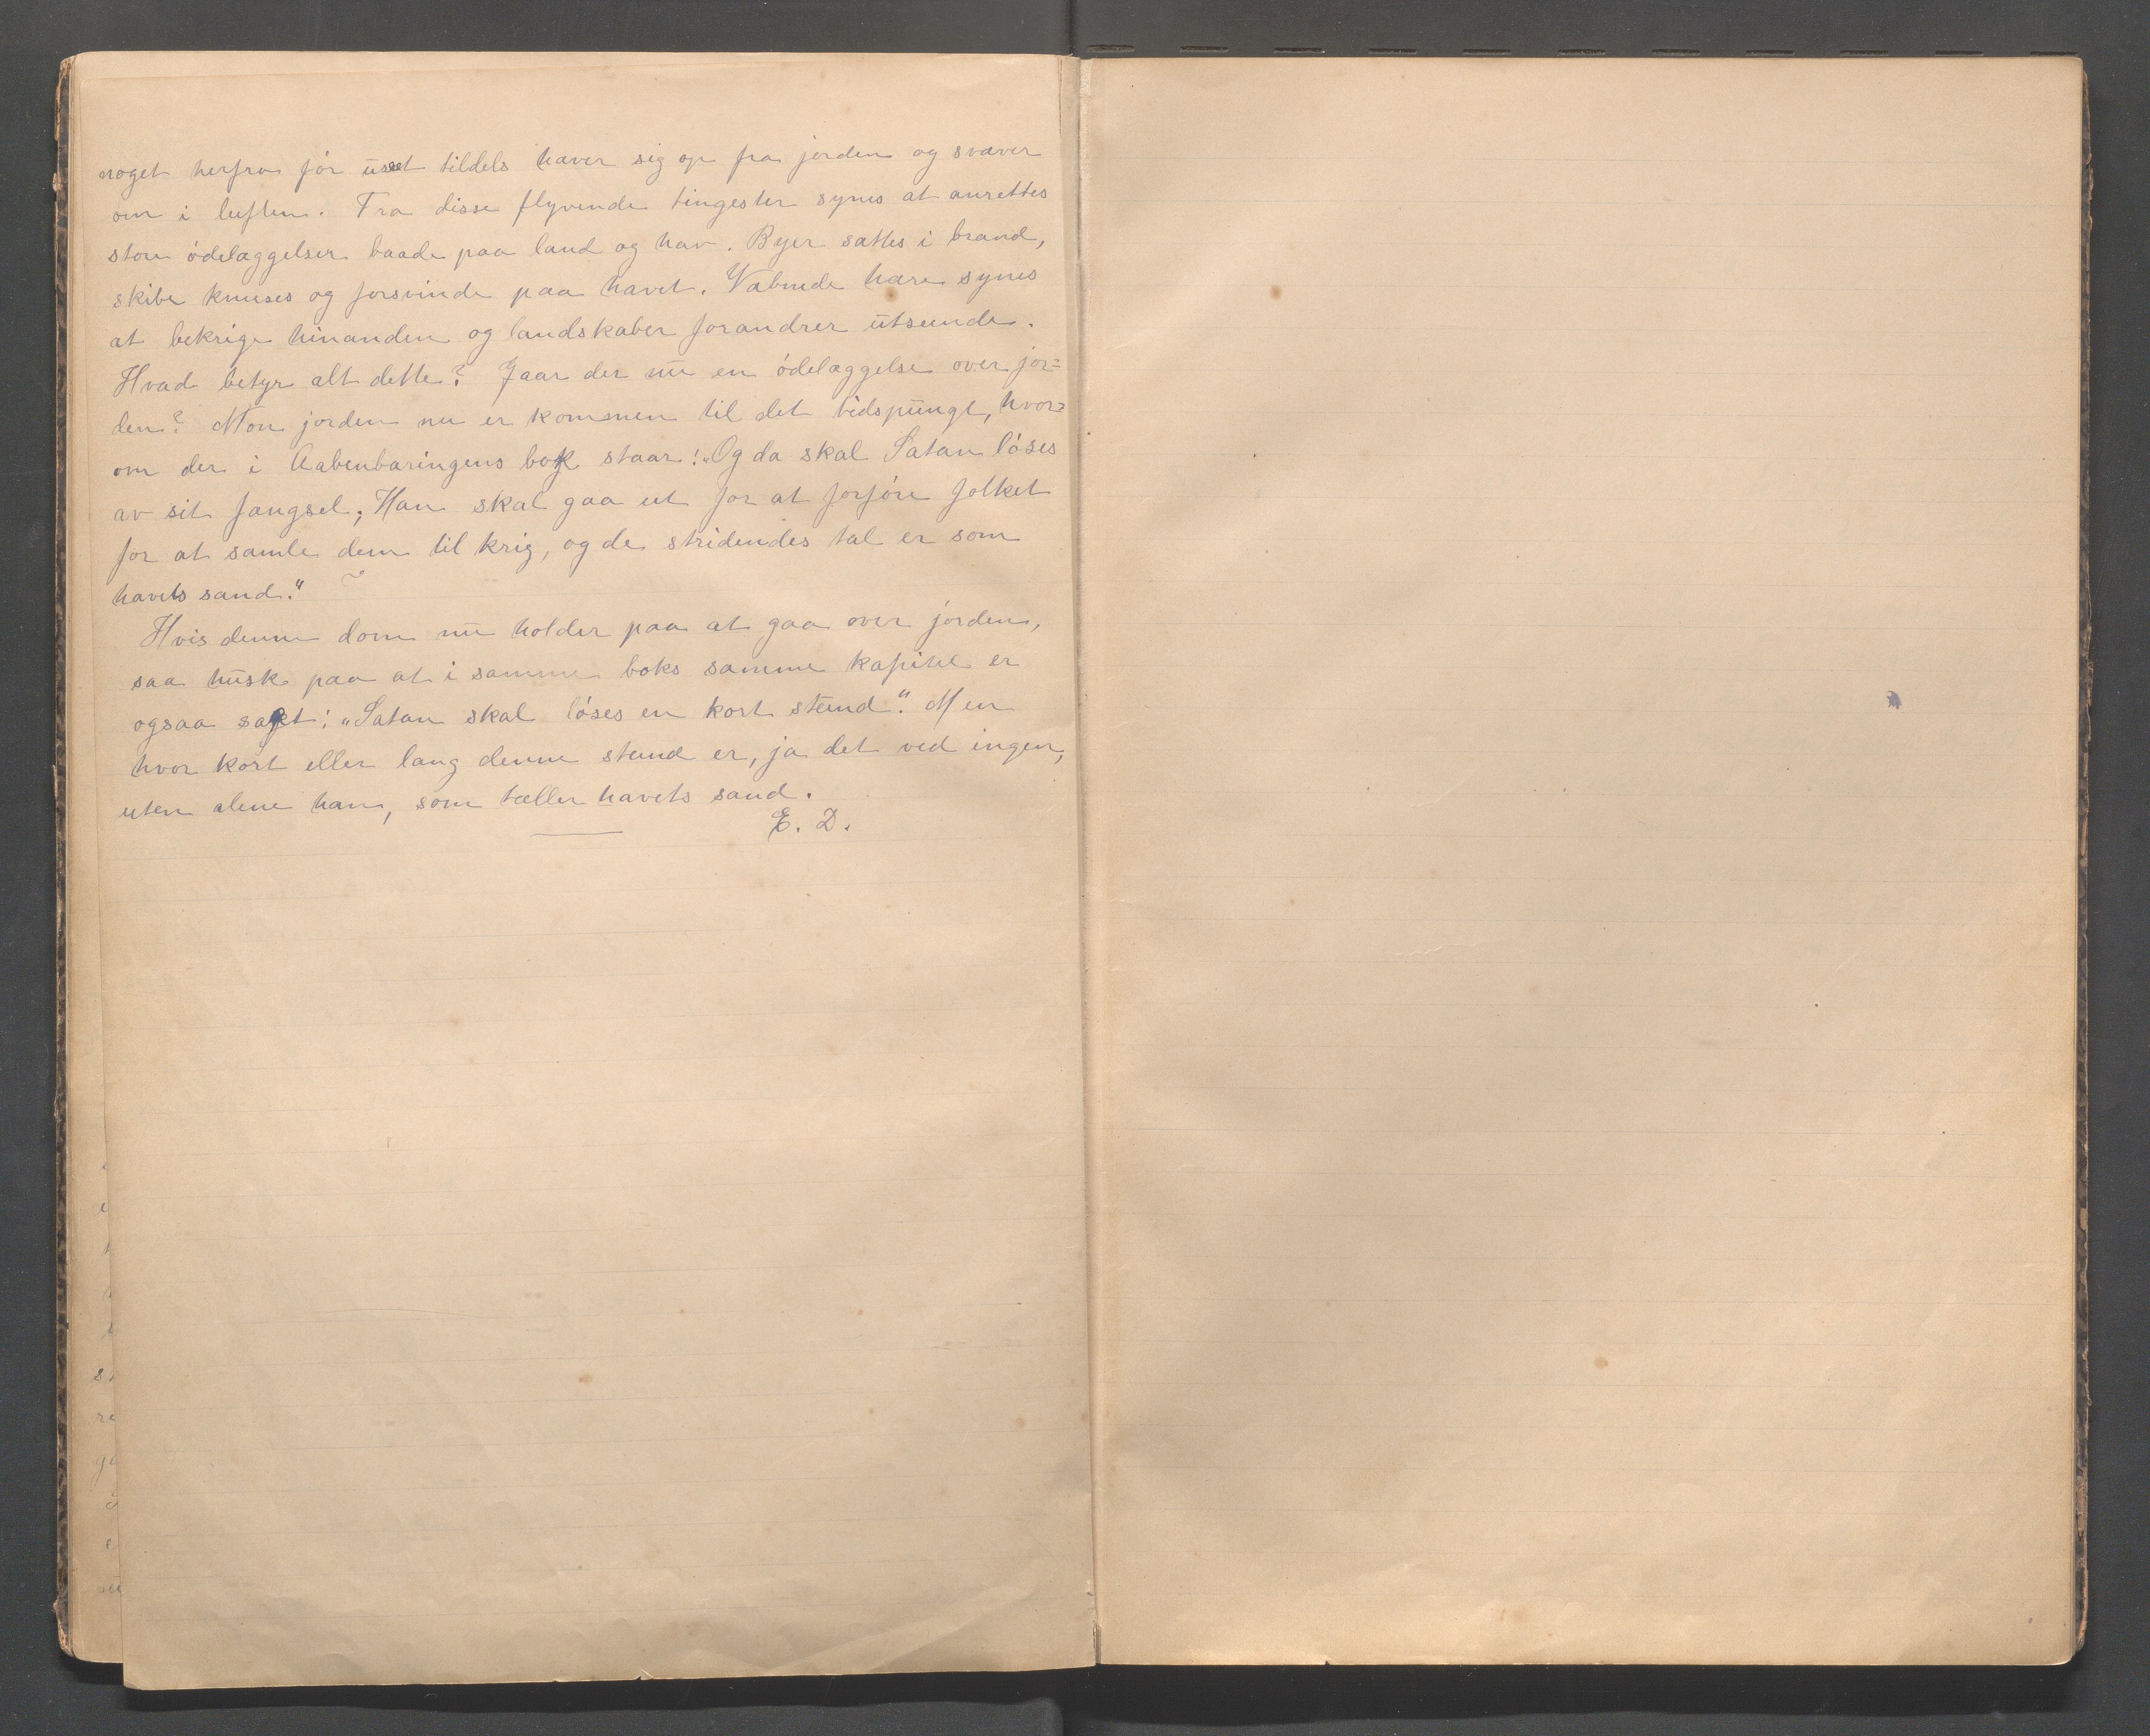 noget herfra før uset tildels hæver sig op fra jorden og svæver
om i luften. Fra disse flyvende tingester synes at anrettes
store ødelæggelser baade paa land og hav. Byer sættes i brand,
skibe knuses og forsvinde paa havet. Væbnede hære synes
at bekrige hinanden og landskaber forandrer utseende.
Hvad betyr alt dette? Gaar der nu en ødelæggelse over jor=
den? Mon jorden nu er kommen til det tidspungt, hvor=
om der i Aabenbaringens bok staar: „Og da skal Satan løses
av sit fængsel; Han skal gaa ut for at forføre folket
for at samle dem til krig, og de stridendes tal er som
havets sand."
Hvis denne dom nu holder paa at gaa over jorden,
saa husk paa at i samme boks samme kapitel er
ogsaa sagt: „Satan skal løses en kort stund". Men
hvor kort eller lang denne stund er, ja det ved ingen,
uten alene han, som tæller havets sand.
E. D.